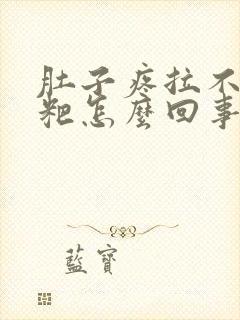 肚子疼拉不
粑怎麼回事
藍寶